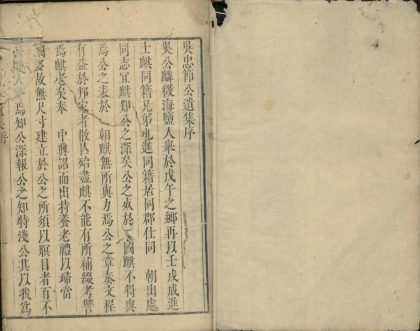 吳忠節公遺集序
吳公麟徵海鹽人舉於戊午之鄉再以壬戌成進
士麒同籍兄弟也進同籍居同郡仕同　朝出處
同志宜麒知公之深矣公之死於　國麒不得與
焉公之表於　朝麒無所與力焉公之章奏文程
有益於邦家者散佚殆盡麒不能有所補綴考讐
焉麒老矣奉　中興詔而出持養老禮以歸當
國者故無尺寸建立於公之所須以瞑目者百不
焉知公深報公之知特淺公其以我爲